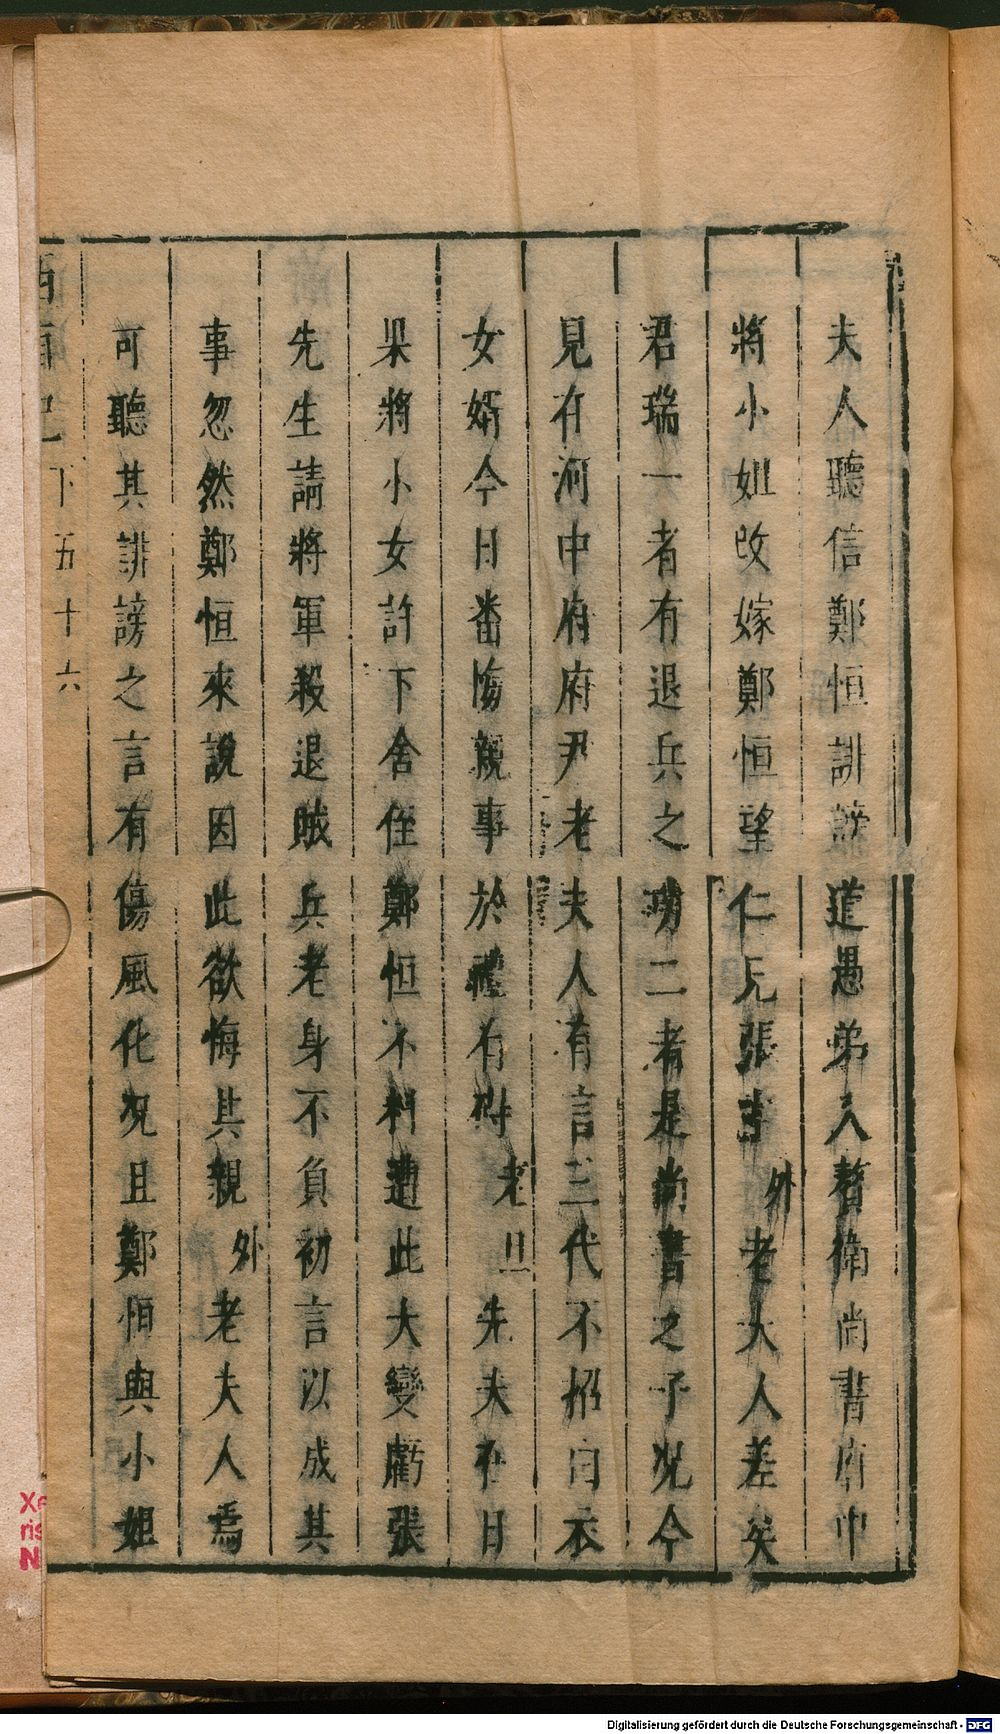 夫人聽信鄭恒誹謗道愚弟入贅衛尚書府中
將小姐改嫁鄭恒望仁兄張主外老夫人差矣
君瑞一者有退兵之功二者是尚書之子況今
見在河中府府尹老夫人有言三代不招白衣
女婿今日番悔親事於禮有碍老旦先夫在日
果將小女許下舍侄鄭恒不料遭此大變虧張
先生請將軍殺退賊兵老身不負初言以成其
事忽然鄭恒來說因此欲悔其親外老夫人焉
可聽其誹謗之言有傷風化況且鄭恒與小姐
西廂記 下五十六
Digitalisierung gefördert durch die Deutsche Forschungsgemeinschaft - DFG